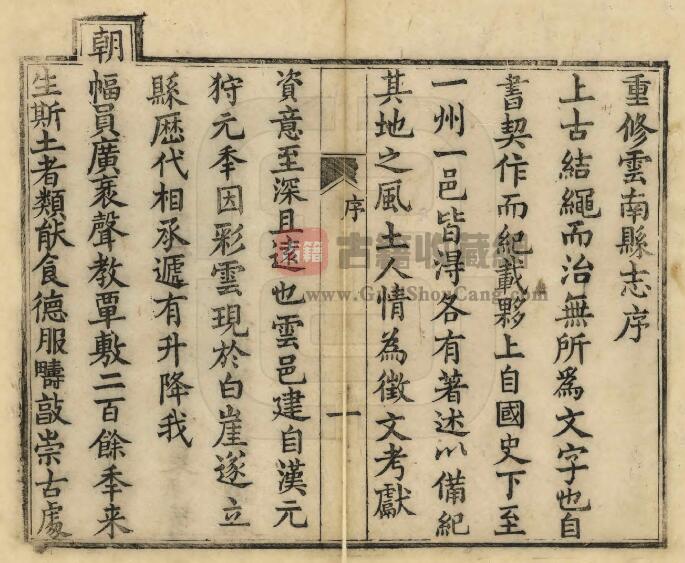 重修雲南縣志序
上古結繩而治無所為文字也自
書契作而紀載夥上自國史下至
一州一邑皆得各有著述以備紀
其地之風土人情為徵文考獻
序
一
資意至深且遠也雲邑建自漢元
狩元季因彩雲現於白崖遂立
縣歷代相承遞有升降我
朝幅員廣袤聲教覃敷二百餘季來
生斯土者類能食德服疇敲崇古處
古籍
古籍收藏網
www.GujiShouCang.com